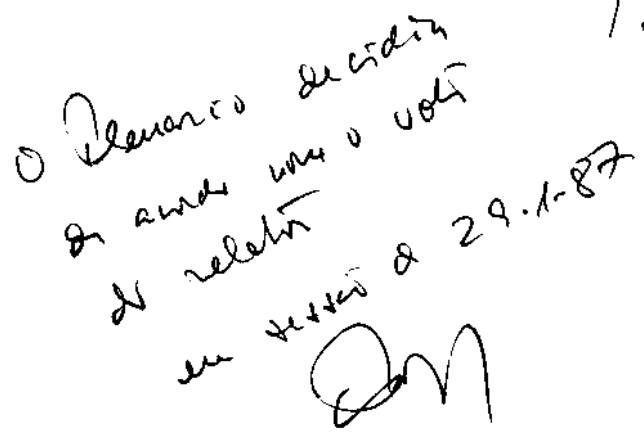 O Plenario decidiu
de acordo com o voto
do relator
em sessão de 29.1.87